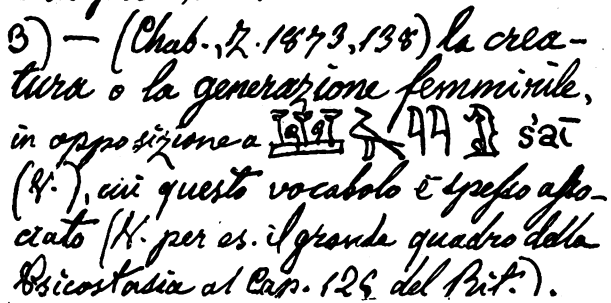 3) — (Chab., Z. 1873, 138) la crea-
tura o la generazione femminile,
in opposizione a s'aï
(V.), cui questo vocabolo è spesso asso-
ciato (V. per es. il grande quadro della
Psicostasia al Cap. 125 del Rit.).